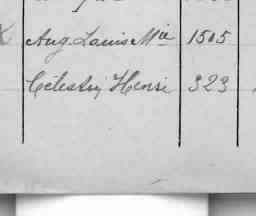 Aug. Louis Mie 1505
Célestin Henri 323